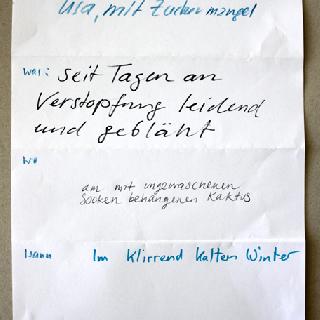 Lisa, mit Zuckermangel
was: seit Tagen an
Verstopfung leidend
und gebläht
wo
am mit ungewaschenen
Socken behangenen Kaktus
Wann Im Klirrend Kalten Winter